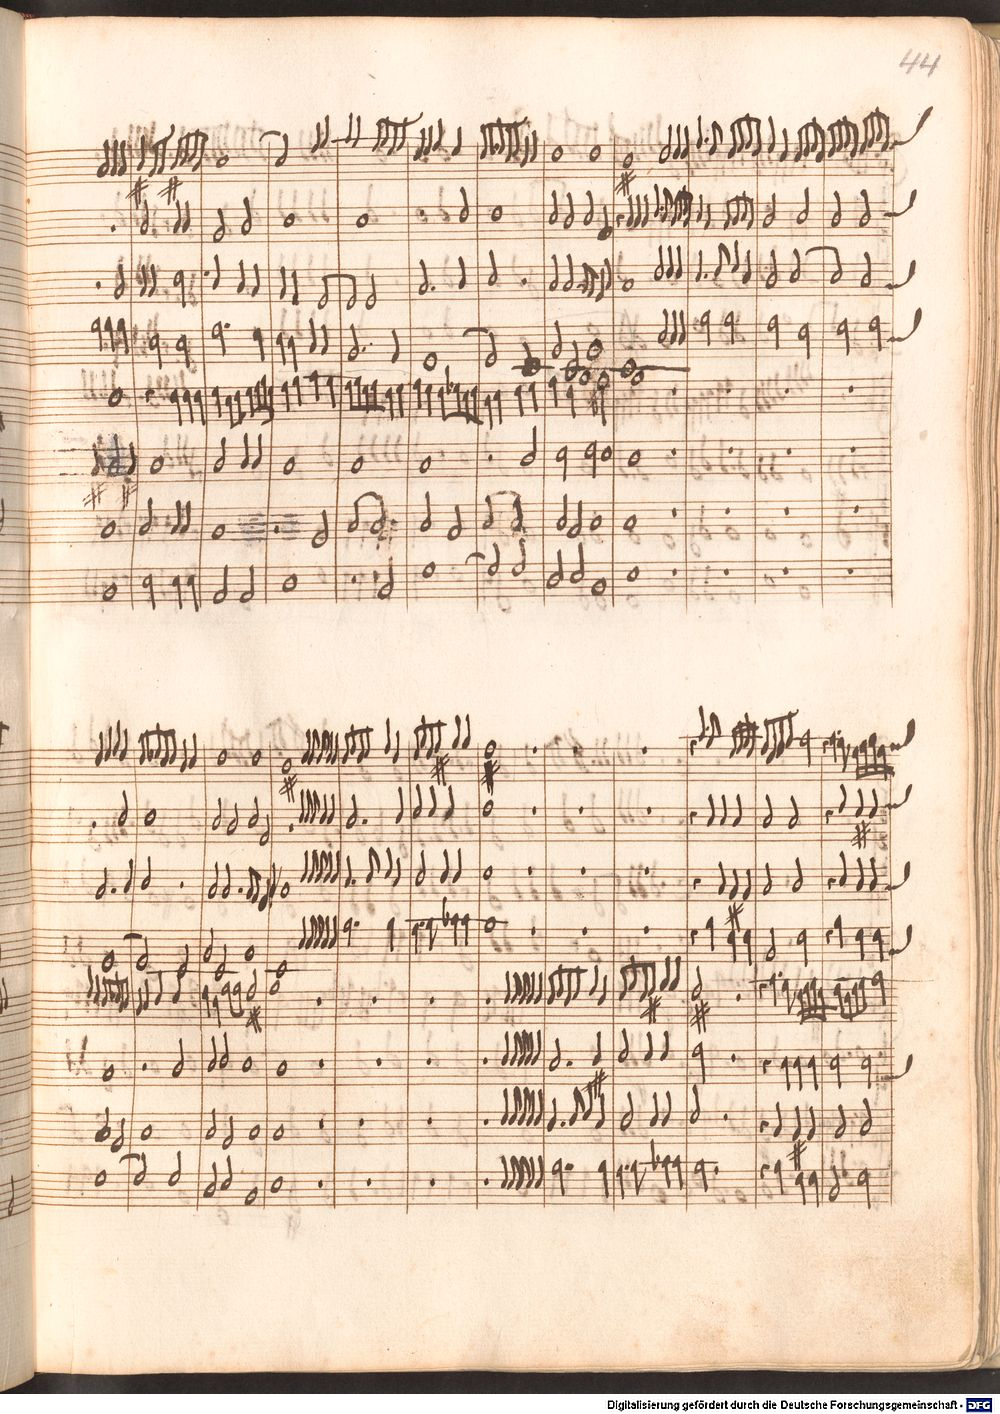 44
Digitalisierung gefördert durch die Deutsche Forschungsgemeinschaft - DFG